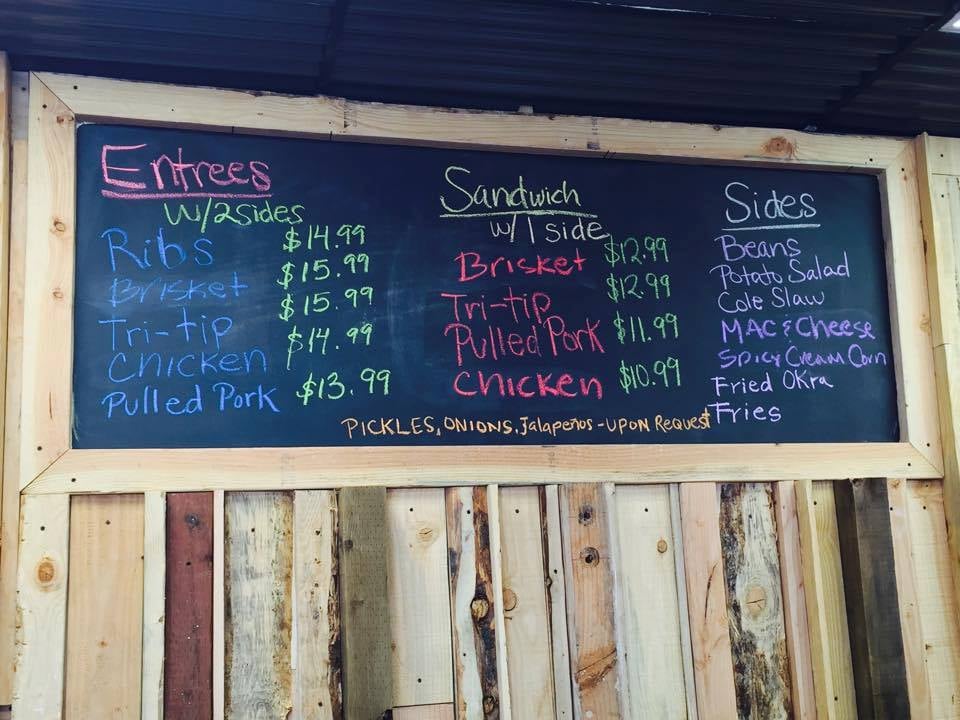 Entrees
w/2sides
Ribs $14.99
Brisket $15.99
Tri-tip $15.99
Chicken $14.99
Pulled Pork $13.99
Sandwich
w/1side
Brisket $12.99
Tri-tip $12.99
Pulled Pork $11.99
Chicken $10.99
PICKLES, ONIONS, Jalapeños - UPON Request
Sides
Beans
Potato Salad
Cole Slaw
MAC & Cheese
Spicy Cream Corn
Fried Okra
Fries